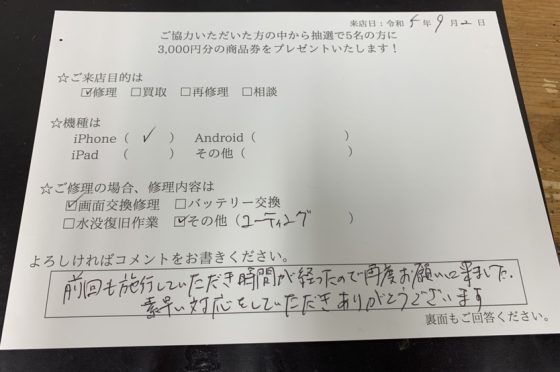 来店日：令和 5 年 9 月 2 日
ご協力いただいた方の中から抽選で5名の方に
3,000円分の商品券をプレゼントいたします！
☆ご来店目的は
☑修理　□買取　□再修理　□相談
☆機種は
iPhone（ ✓ ）　Android（　　　　　）
iPad　（　　）　その他（　　　　　）
☆ご修理の場合、修理内容は
☑画面交換修理　□バッテリー交換
□水没復旧作業　☑その他（コーティング　）
よろしければコメントをお書きください。
前回も施行していただき時間が経ったので再度お願いに来ました。
素早い対応をしていただきありがとうございます
裏面もご回答ください。